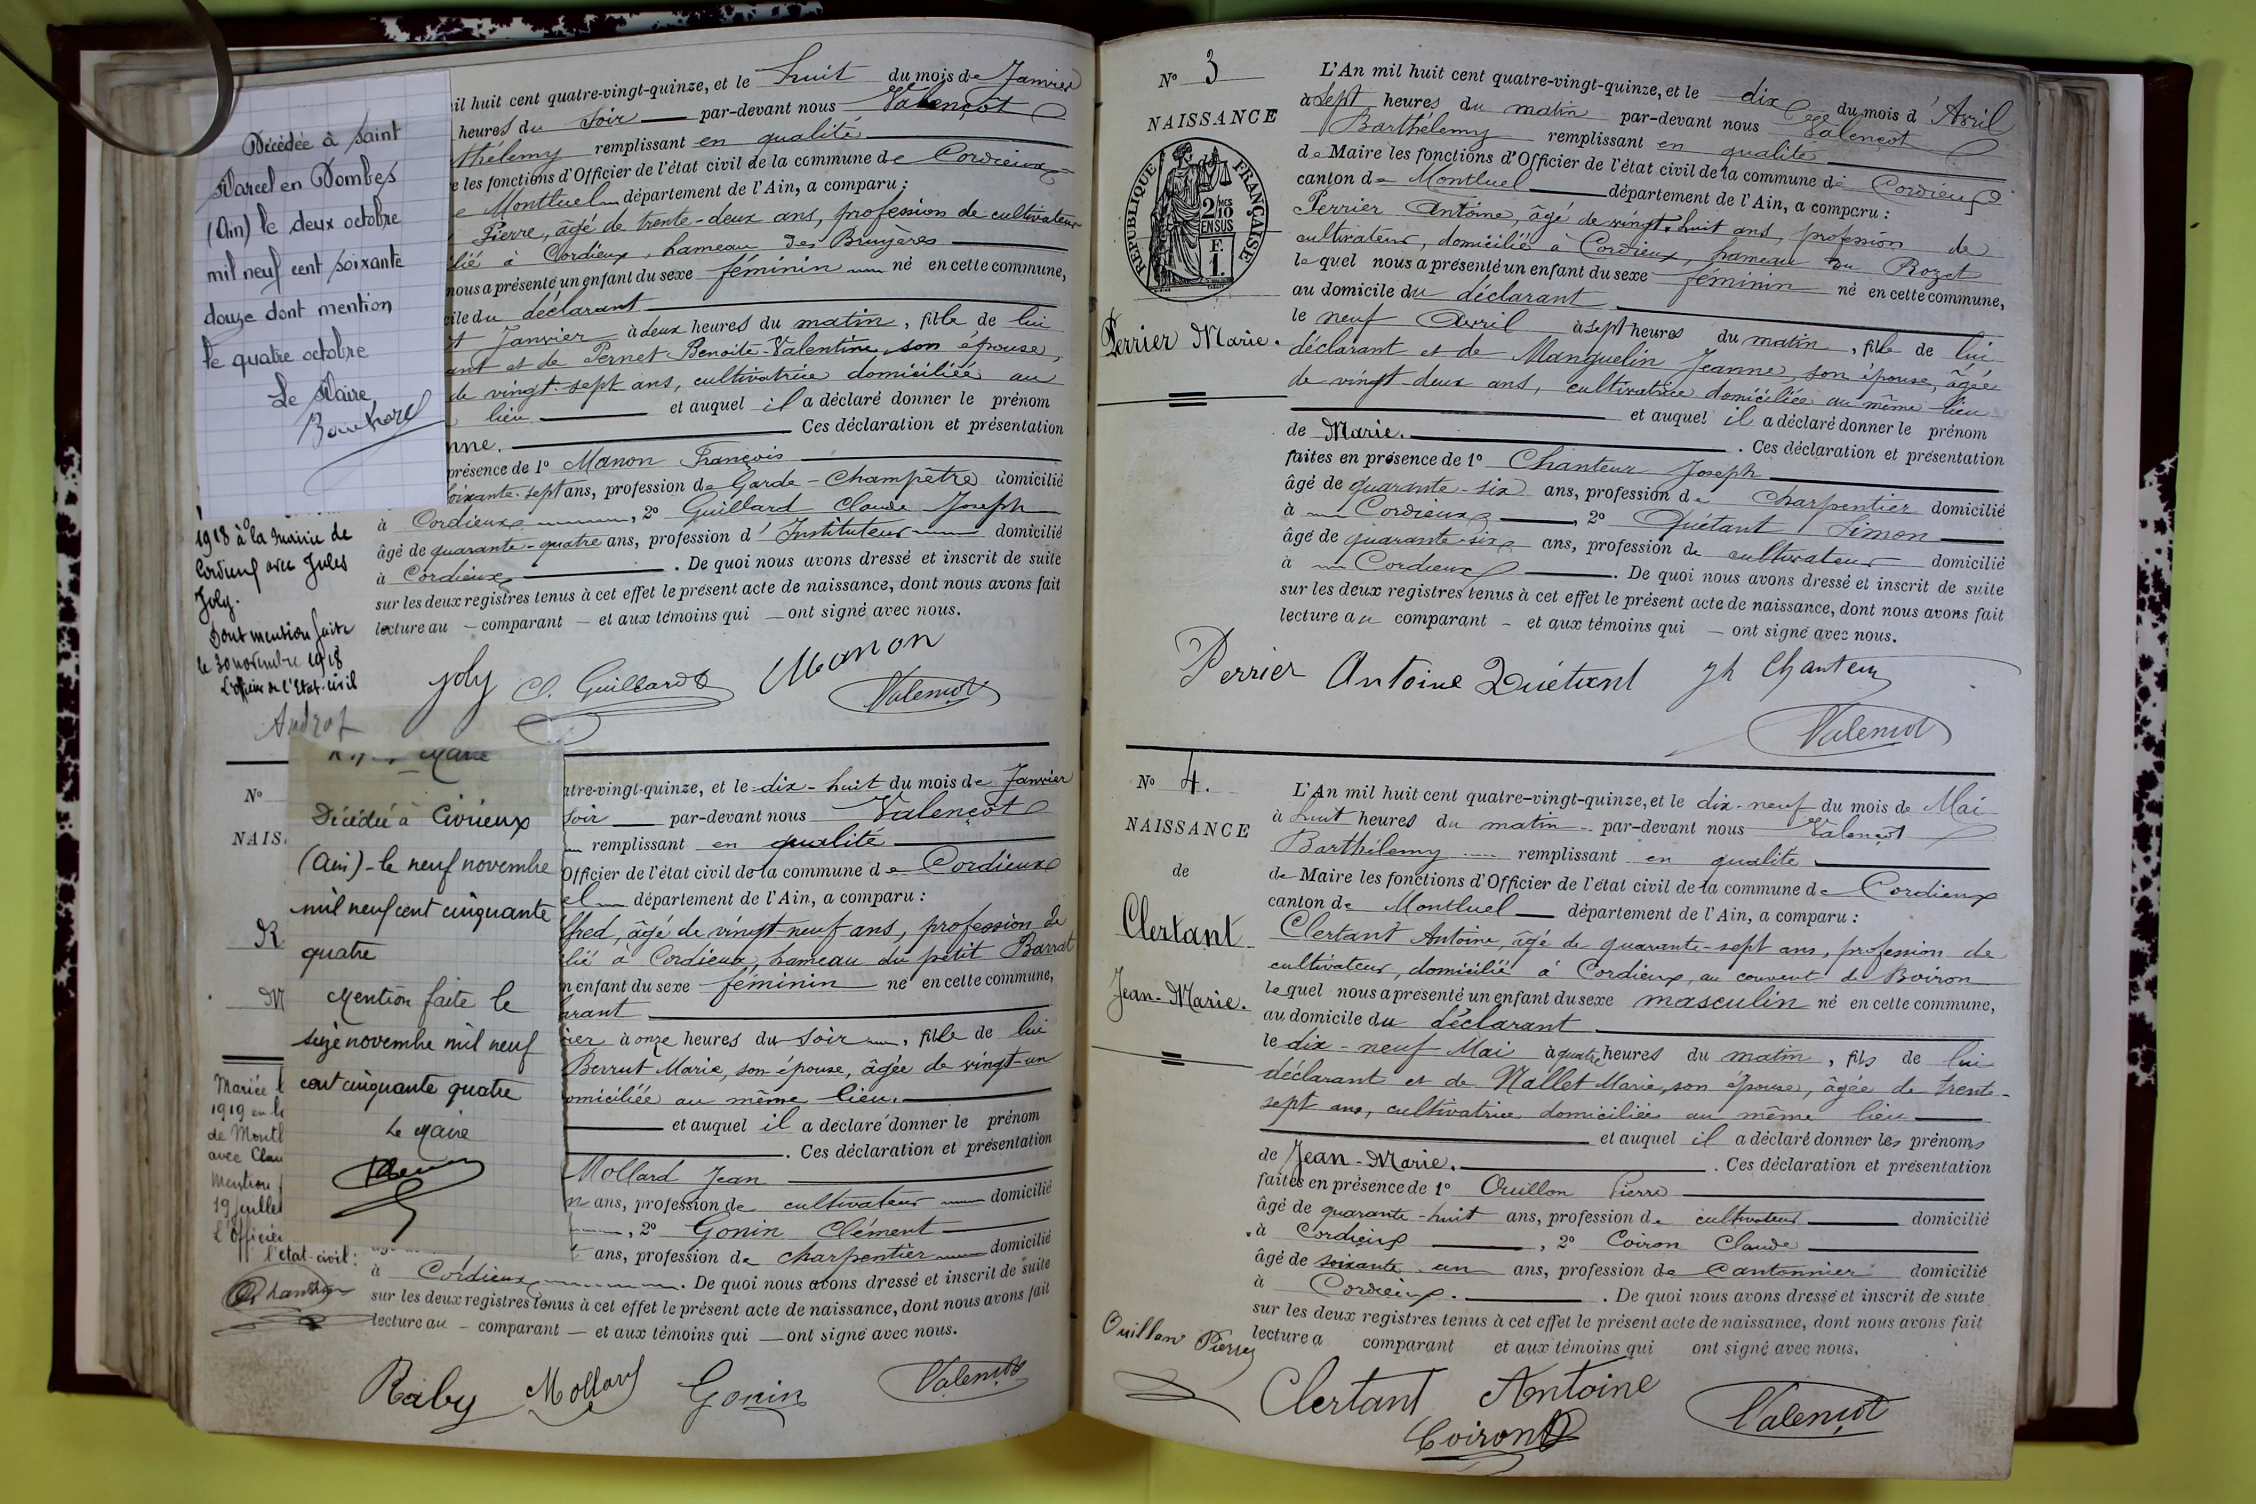 Décédée à Saint
Marcel en Dombes
(Ain) le deux octobre
mil neuf cent soixante
douze dont mention
le quatre octobre
Le Maire
1918 à la Mairie de
Cordieux avec Jules
Joly.
Dont mention faite
le 30 novembre 1918
L'officier de l'Etat-civil
il huit cent quatre-vingt-quinze, et le huit du mois de Janvier
heures du soir par-devant nous Valençot
thélemy remplissant en qualité
e les fonctions d'Officier de l'état civil de la commune de Cordieux
e Montluel département de l'Ain, a comparu :
Pierre, âgé de trente-deux ans, profession de cultivateur
lié à Cordieux, hameau des Bruyères
nous a présenté un enfant du sexe féminin né en cette commune,
cile du déclarant
Janvier à deux heures du matin, fille de lui
ant et de Pernet Benoite-Valentine, son épouse,
de vingt-sept ans, cultivatrice domiciliée au
lieu et auquel il a déclaré donner le prénom
nne. Ces déclaration et présentation
présence de 1° Manon François
oixante-sept ans, profession de Garde-Champêtre domicilié
à Cordieux, 2° Guillard Claude Joseph
âgé de quarante-quatre ans, profession d'Instituteur domicilié
à Cordieux. De quoi nous avons dressé et inscrit de suite
sur les deux registres tenus à cet effet le présent acte de naissance, dont nous avons fait
lecture au – comparant – et aux témoins qui – ont signé avec nous.
Joly Cl. Guillard Manon
Valençot
Marie
Décédée à Civrieux
(Ain) - le neuf novembre
mil neuf cent cinquante
quatre
Mention faite le
seize novembre mil neuf
cent cinquante quatre
Le Maire
N°
NAIS
R
M
Mariée
1919 en
de Montl
avec Clau
Mention
19 juillet
L'Officier
l'état-civil :
atre-vingt-quinze, et le dix-huit du mois de Janvier
soir par-devant nous Valençot
remplissant en qualité
Officier de l'état civil de la commune de Cordieux
el département de l'Ain, a comparu :
fred, âgé de vingt-neuf ans, profession de
lié à Cordieux, hameau du petit Barrat
n enfant du sexe féminin né en cette commune,
arant
ier à onze heures du soir, fille de lui
Berrut Marie, son épouse, âgée de vingt-un
omiciliée au même lieu.
et auquel il a déclaré donner le prénom
. Ces déclaration et présentation
Mollard Jean
n ans, profession de cultivateur domicilié
, 2° Gonin Clément
ans, profession de charpentier domicilié
à Cordieux. De quoi nous avons dressé et inscrit de suite
sur les deux registres tenus à cet effet le présent acte de naissance, dont nous avons fait
lecture au – comparant – et aux témoins qui – ont signé avec nous.
Raby Mollard Gonin Valençot
N° 3
NAISSANCE
RÉPUBLIQUE FRANÇAISE
2/10 MES
EN SUS
F.
1.
Perrier Marie.
L'An mil huit cent quatre-vingt-quinze, et le dix du mois d'Avril
à sept heures du matin par-devant nous Valençot
Barthélemy remplissant en qualité
de Maire les fonctions d'Officier de l'état civil de la commune de Cordieux
canton de Montluel département de l'Ain, a comparu :
Perrier Antoine, âgé de vingt-huit ans, profession de
cultivateur, domicilié à Cordieux, hameau du Rozet
lequel nous a présenté un enfant du sexe féminin né en cette commune,
au domicile du déclarant
le neuf Avril à sept heures du matin, fille de lui
déclarant et de Manguelin Jeanne, son épouse, âgée
de vingt-deux ans, cultivatrice domiciliée au même lieu
et auquel il a déclaré donner le prénom
de Marie. . Ces déclaration et présentation
faites en présence de 1° Chanteur Joseph
âgé de quarante-six ans, profession de charpentier domicilié
à Cordieux, 2° Quétant Simon
âgé de quarante-six ans, profession de cultivateur domicilié
à Cordieux. De quoi nous avons dressé et inscrit de suite
sur les deux registres tenus à cet effet le présent acte de naissance, dont nous avons fait
lecture au comparant – et aux témoins qui – ont signé avec nous.
Perrier Antoine Quétant Jh Chanteur
Valençot
N° 4.
NAISSANCE
de
Clertant
Jean-Marie.
L'An mil huit cent quatre-vingt-quinze, et le dix-neuf du mois de Mai
à huit heures du matin par-devant nous Valençot
Barthélemy remplissant en qualité
de Maire les fonctions d'Officier de l'état civil de la commune de Cordieux
canton de Montluel département de l'Ain, a comparu :
Clertant Antoine, âgé de quarante-sept ans, profession de
cultivateur, domicilié à Cordieux, au couvent de Boiron
lequel nous a présenté un enfant du sexe masculin né en cette commune,
au domicile du déclarant
le dix-neuf Mai à quatre heures du matin, fils de lui
déclarant et de Nallet Marie, son épouse, âgée de trente-
sept ans, cultivatrice domiciliée au même lieu
et auquel il a déclaré donner les prénoms
de Jean-Marie. . Ces déclaration et présentation
faites en présence de 1° Ouillon Pierre
âgé de quarante-huit ans, profession de cultivateur domicilié
à Cordieux, 2° Coiron Claude
âgé de soixante un ans, profession de Cantonnier domicilié
à Cordieux. . De quoi nous avons dressé et inscrit de suite
sur les deux registres tenus à cet effet le présent acte de naissance, dont nous avons fait
lecture a comparant et aux témoins qui ont signé avec nous.
Ouillon Pierre
Clertant Antoine Valençot
Coiron